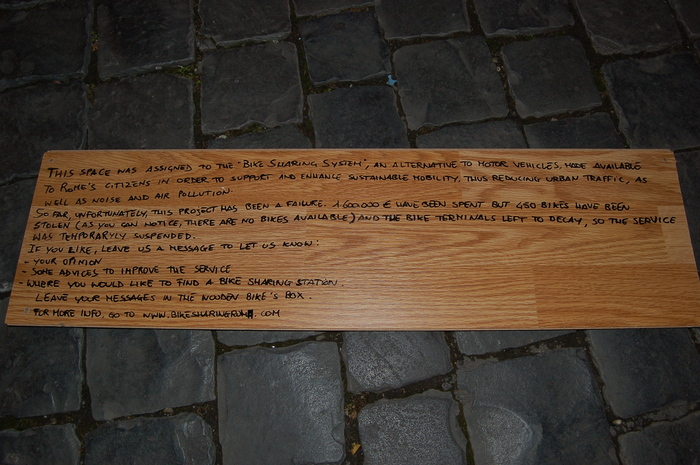 THIS SPACE WAS ASSIGNED TO THE "BIKE SHARING SYSTEM", AN ALTERNATIVE TO MOTOR VEHICLES, MADE AVAILABLE
TO ROME'S CITIZENS IN ORDER TO SUPPORT AND ENHANCE SUSTAINABLE MOBILITY, THUS REDUCING URBAN TRAFFIC, AS
WELL AS NOISE AND AIR POLLUTION.
SO FAR, UNFORTUNATELY, THIS PROJECT HAS BEEN A FAILURE. 1.600.000 € HAVE BEEN SPENT BUT 450 BIKES HAVE BEEN
STOLEN (AS YOU CAN NOTICE, THERE ARE NO BIKES AVAILABLE) AND THE BIKE TERMINALS LEFT TO DECAY, SO THE SERVICE
WAS TEMPORARYLY SUSPENDED.
IF YOU LIKE, LEAVE US A MESSAGE TO LET US KNOW:
- YOUR OPINION
- SOME ADVICES TO IMPROVE THE SERVICE
- WHERE YOU WOULD LIKE TO FIND A BIKE SHARING STATION.
LEAVE YOUR MESSAGES IN THE WOODEN BIKE'S BOX.
FOR MORE INFO, GO TO WWW.BIKESHARINGROMA.COM